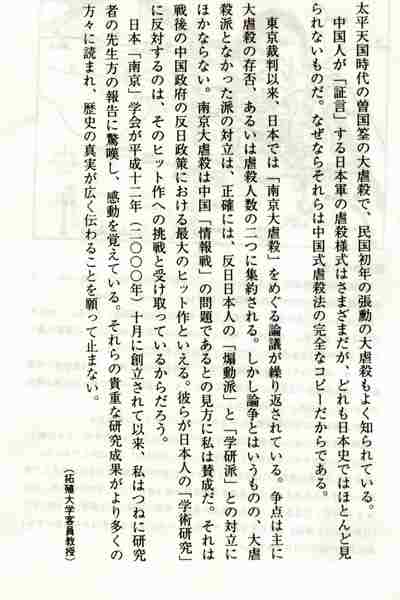 太平天国時代の曽国筌の大虐殺で、民国初年の張勲の大虐殺もよく知られている。
中国人が「証言」する日本軍の虐殺様式はさまざまだが、どれも日本史ではほとんど見
られないものだ。なぜならそれらは中国式虐殺法の完全なコピーだからである。
東京裁判以来、日本では「南京大虐殺」をめぐる論議が繰り返されている。争点は主に
大虐殺の存否、あるいは虐殺人数の二つに集約される。しかし論争とはいうものの、大虐
殺派となかった派の対立は、正確には、反日日本人の「煽動派」と「学研派」との対立に
ほかならない。南京大虐殺は中国「情報戦」の問題であるとの見方に私は賛成だ。それは
戦後の中国政府の反日政策における最大のヒット作といえる。彼らが日本人の「学術研究」
に反対するのは、そのヒット作への挑戦と受け取っているからだろう。
日本「南京」学会が平成十二年（二〇〇〇年）十月に創立されて以来、私はつねに研究
者の先生方の報告に驚嘆し、感動を覚えている。それらの貴重な研究成果がより多くの
方々に読まれ、歴史の真実が広く伝わることを願って止まない。
（拓殖大学客員教授）